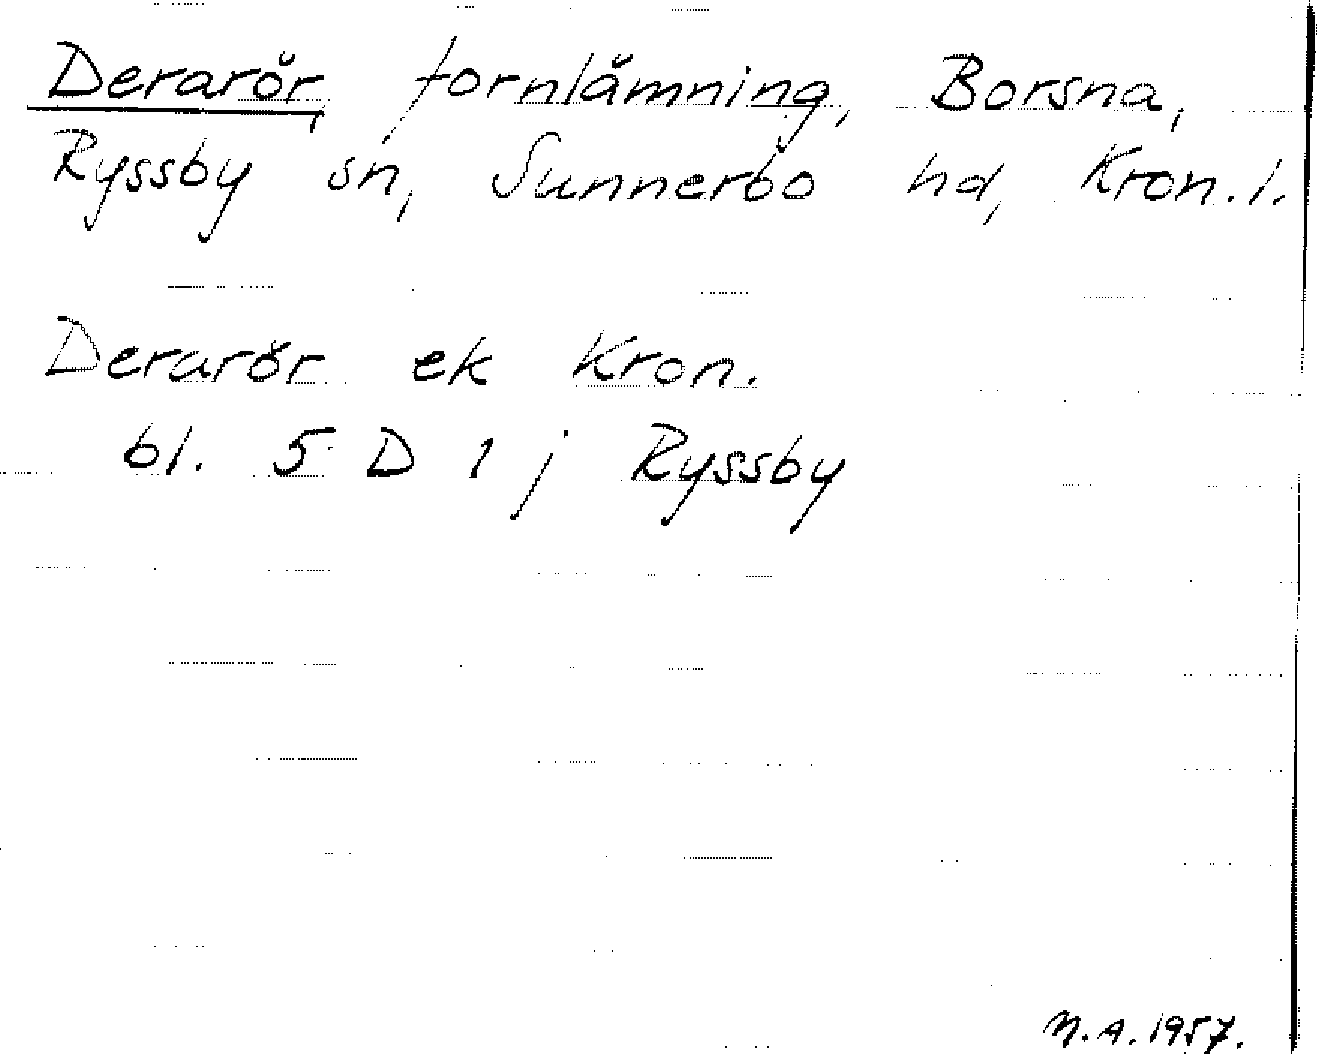 Derarör, fornlämning, Borsna,
Ryssby sn, Sunnerbo hd, Kron. l.
Derarör ek Kron.
bl. 5 D 1 j Ryssby
N.A. 1957.